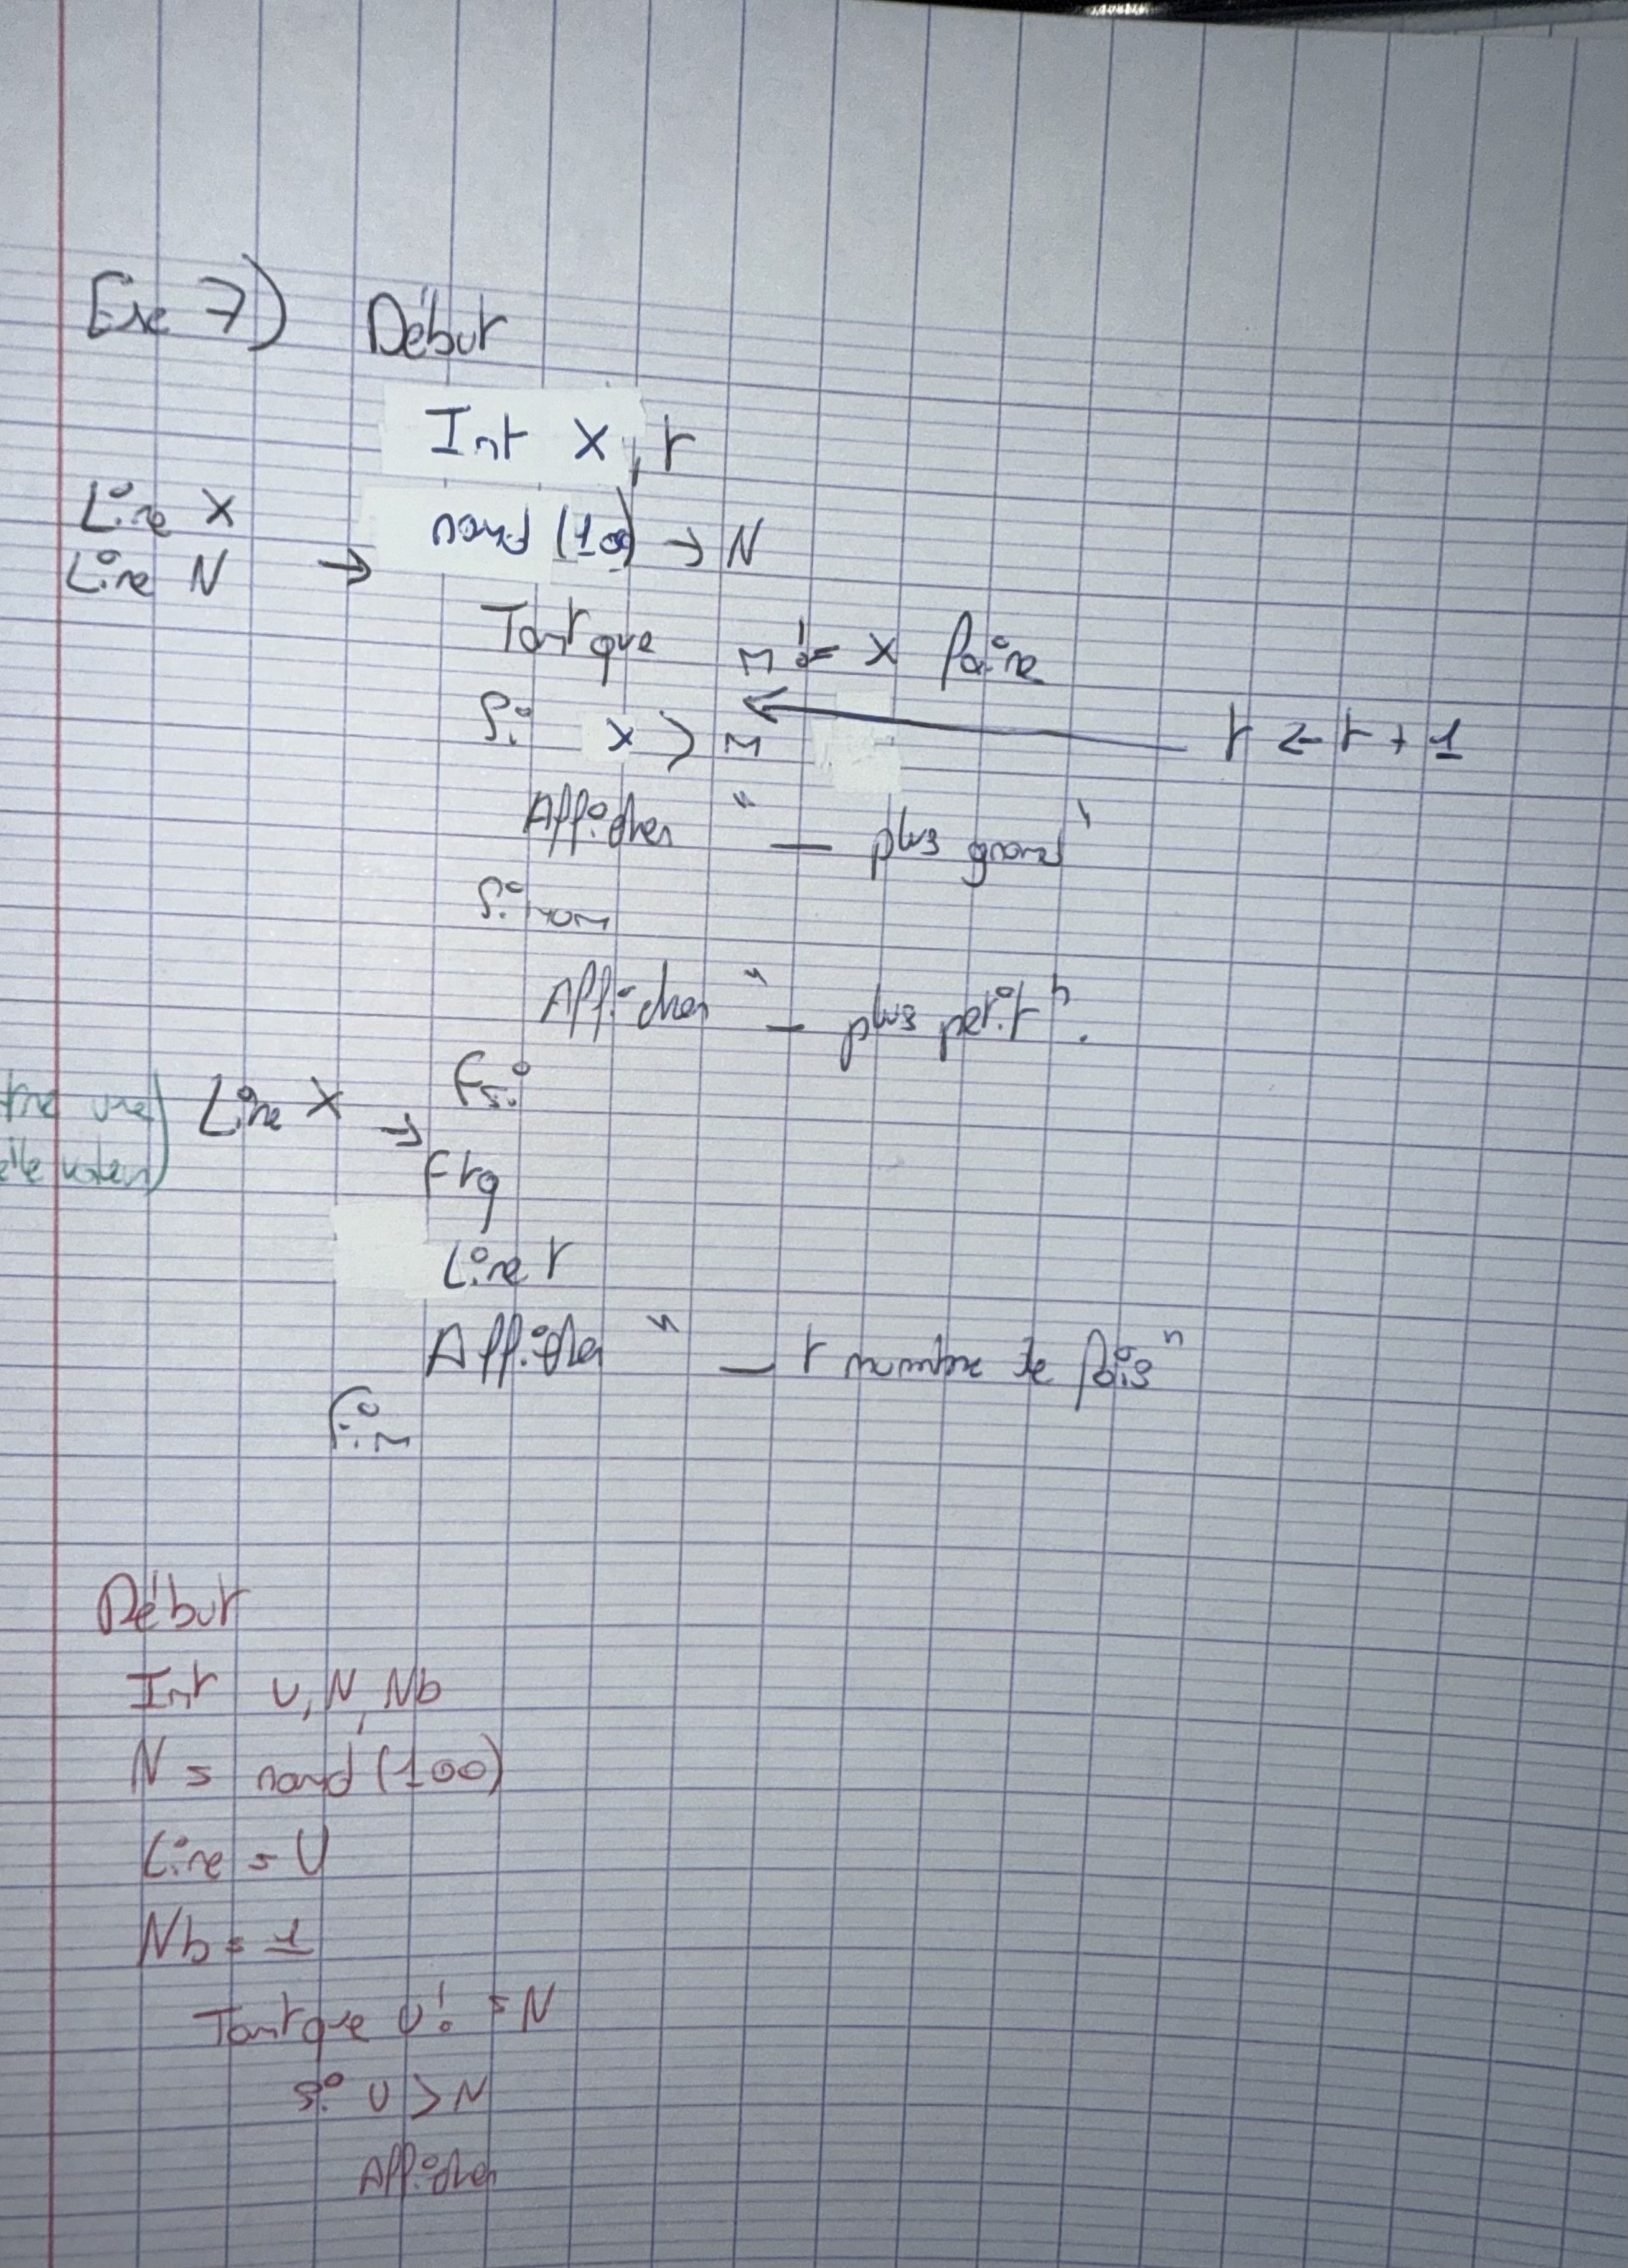 Exe 7) Début
Int x, r
Lire X
rand (100) → N
Lire N →
Tant que n != x faire
Si x > n
← r ← r + 1
Afficher " — plus grand "
Sinon
Afficher " — plus petit ".
Fsi
Lire X →
Ftq
Lire r
Afficher " — r nombre de fois "
Fin
Début
Int U, N, Nb
N = rand (100)
Lire = U
Nb = 1
Tant que U != N
Si U > N
Afficher